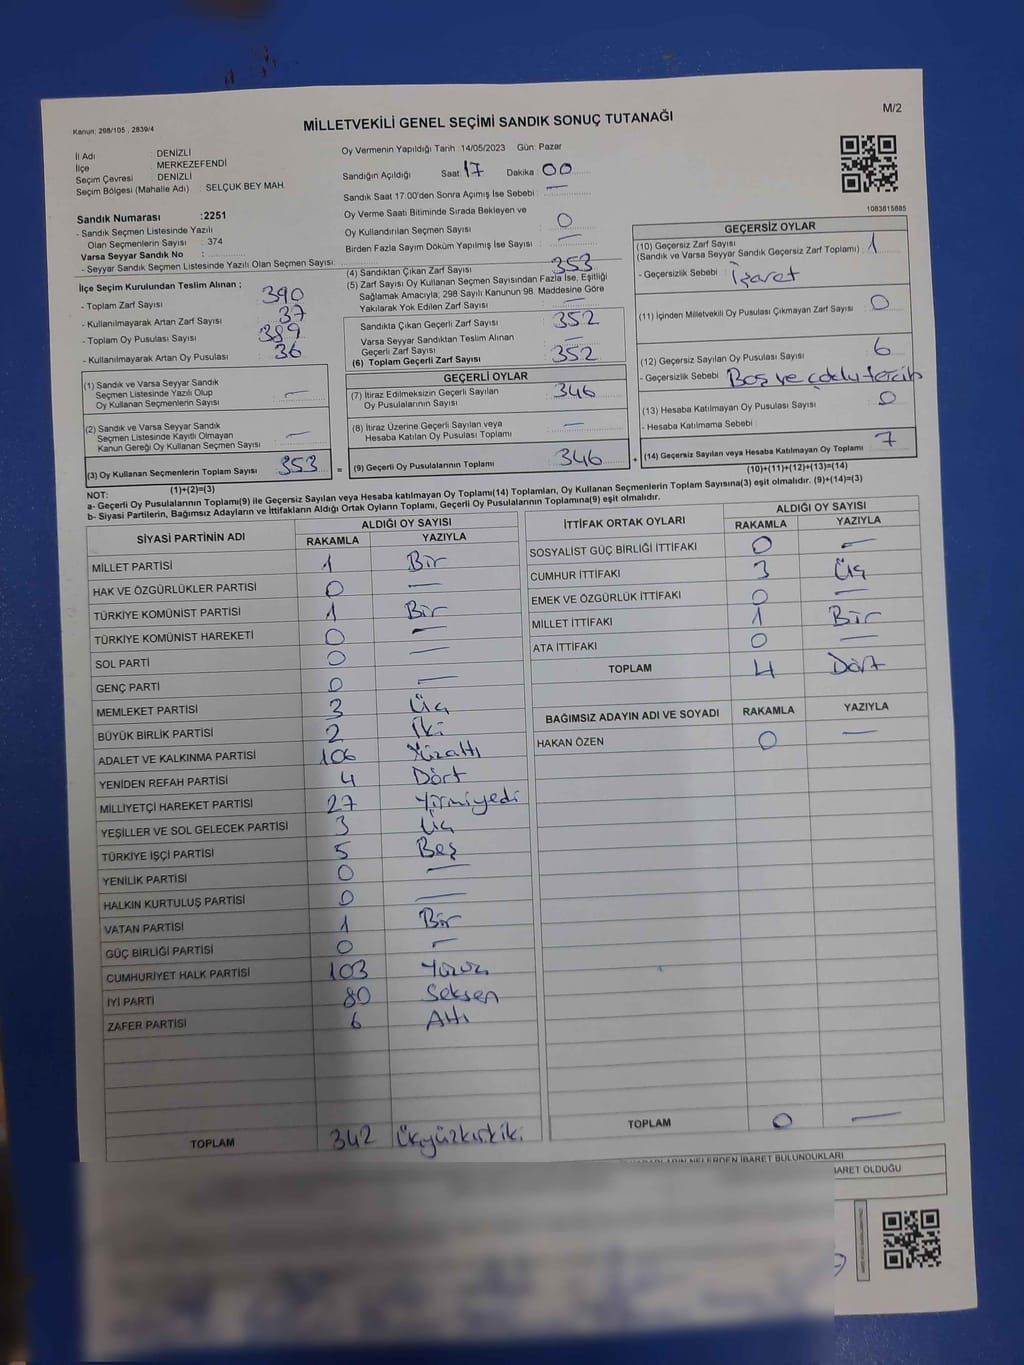 Kanun: 298/105 , 2839/4
MİLLETVEKİLİ GENEL SEÇİMİ SANDIK SONUÇ TUTANAĞI
M/2
İl Adı : DENİZLİ
İlçe : MERKEZEFENDİ
Seçim Çevresi : DENİZLİ
Seçim Bölgesi (Mahalle Adı) : SELÇUK BEY MAH.
Oy Vermenin Yapıldığı Tarih : 14/05/2023 Gün: Pazar
Sandığın Açıldığı Saat 17 Dakika 00
Sandık Saat 17:00'den Sonra Açımış İse Sebebi : —
Oy Verme Saati Bitiminde Sırada Bekleyen ve
Oy Kullandırılan Seçmen Sayısı : 0
Birden Fazla Sayım Döküm Yapılmış İse Sayısı : —
1083815885
Sandık Numarası :2251
- Sandık Seçmen Listesinde Yazılı
Olan Seçmenlerin Sayısı : 374
Varsa Seyyar Sandık No :
- Seyyar Sandık Seçmen Listesinde Yazılı Olan Seçmen Sayısı:
İlçe Seçim Kurulundan Teslim Alınan ;
- Toplam Zarf Sayısı : 390
- Kullanılmayarak Artan Zarf Sayısı : 37
- Toplam Oy Pusulası Sayısı : 389
- Kullanılmayarak Artan Oy Pusulası : 36
(1) Sandık ve Varsa Seyyar Sandık
Seçmen Listesinde Yazılı Olup
Oy Kullanan Seçmenlerin Sayısı : —
(2) Sandık ve Varsa Seyyar Sandık
Seçmen Listesinde Kayıtlı Olmayan
Kanun Gereği Oy Kullanan Seçmen Sayısı : —
(3) Oy Kullanan Seçmenlerin Toplam Sayısı 353 =
(1)+(2)=(3)
(4) Sandıktan Çıkan Zarf Sayısı : 353
(5) Zarf Sayısı Oy Kullanan Seçmen Sayısından Fazla İse, Eşitliği
Sağlamak Amacıyla; 298 Sayılı Kanunun 98. Maddesine Göre
Yakılarak Yok Edilen Zarf Sayısı : —
Sandıkta Çıkan Geçerli Zarf Sayısı : 352
Varsa Seyyar Sandıktan Teslim Alınan
Geçerli Zarf Sayısı : —
(6) Toplam Geçerli Zarf Sayısı : 352
GEÇERLİ OYLAR
(7) İtiraz Edilmeksizin Geçerli Sayılan
Oy Pusulalarının Sayısı : 346
(8) İtiraz Üzerine Geçerli Sayılan veya
Hesaba Katılan Oy Pusulası Toplamı : —
(9) Geçerli Oy Pusulalarının Toplamı : 346 +
GEÇERSİZ OYLAR
(10) Geçersiz Zarf Sayısı
(Sandık ve Varsa Seyyar Sandık Geçersiz Zarf Toplamı) : 1
- Geçersizlik Sebebi : İşaret
(11) İçinden Milletvekili Oy Pusulası Çıkmayan Zarf Sayısı : 0
(12) Geçersiz Sayılan Oy Pusulası Sayısı : 6
- Geçersizlik Sebebi : Boş ve çoklu tercih
(13) Hesaba Katılmayan Oy Pusulası Sayısı : 0
- Hesaba Katılmama Sebebi :
(14) Geçersiz Sayılan veya Hesaba Katılmayan Oy Toplamı : 7
(10)+(11)+(12)+(13)=(14)
NOT:
a- Geçerli Oy Pusulalarının Toplamı(9) ile Geçersiz Sayılan veya Hesaba katılmayan Oy Toplamı(14) Toplamları, Oy Kullanan Seçmenlerin Toplam Sayısına(3) eşit olmalıdır. (9)+(14)=(3)
b- Siyasi Partilerin, Bağımsız Adayların ve İttifakların Aldığı Ortak Oyların Toplamı, Geçerli Oy Pusulalarının Toplamına(9) eşit olmalıdır.
SİYASİ PARTİNİN ADI ALDIĞI OY SAYISI
RAKAMLA YAZIYLA
MİLLET PARTİSİ 1 Bir
HAK VE ÖZGÜRLÜKLER PARTİSİ 0 —
TÜRKİYE KOMÜNİST PARTİSİ 1 Bir
TÜRKİYE KOMÜNİST HAREKETİ 0 —
SOL PARTİ 0 —
GENÇ PARTİ 0 —
MEMLEKET PARTİSİ 3 Üç
BÜYÜK BİRLİK PARTİSİ 2 İki
ADALET VE KALKINMA PARTİSİ 106 Yüzaltı
YENİDEN REFAH PARTİSİ 4 Dört
MİLLİYETÇİ HAREKET PARTİSİ 27 Yirmiyedi
YEŞİLLER VE SOL GELECEK PARTİSİ 3 Üç
TÜRKİYE İŞÇİ PARTİSİ 5 Beş
YENİLİK PARTİSİ 0 —
HALKIN KURTULUŞ PARTİSİ 0 —
VATAN PARTİSİ 1 Bir
GÜÇ BİRLİĞİ PARTİSİ 0 —
CUMHURİYET HALK PARTİSİ 103
İYİ PARTİ 80 Seksen
ZAFER PARTİSİ 6 Altı
TOPLAM 342 Üçyüzkırkiki
İTTİFAK ORTAK OYLARI ALDIĞI OY SAYISI
RAKAMLA YAZIYLA
SOSYALİST GÜÇ BİRLİĞİ İTTİFAKI 0 —
CUMHUR İTTİFAKI 3 Üç
EMEK VE ÖZGÜRLÜK İTTİFAKI 0 —
MİLLET İTTİFAKI 1 Bir
ATA İTTİFAKI 0 —
TOPLAM 4 Dört
BAĞIMSIZ ADAYIN ADI VE SOYADI RAKAMLA YAZIYLA
HAKAN ÖZEN 0 —
TOPLAM 0 —
NELERDEN İBARET BULUNDUKLARI
OLDUĞU